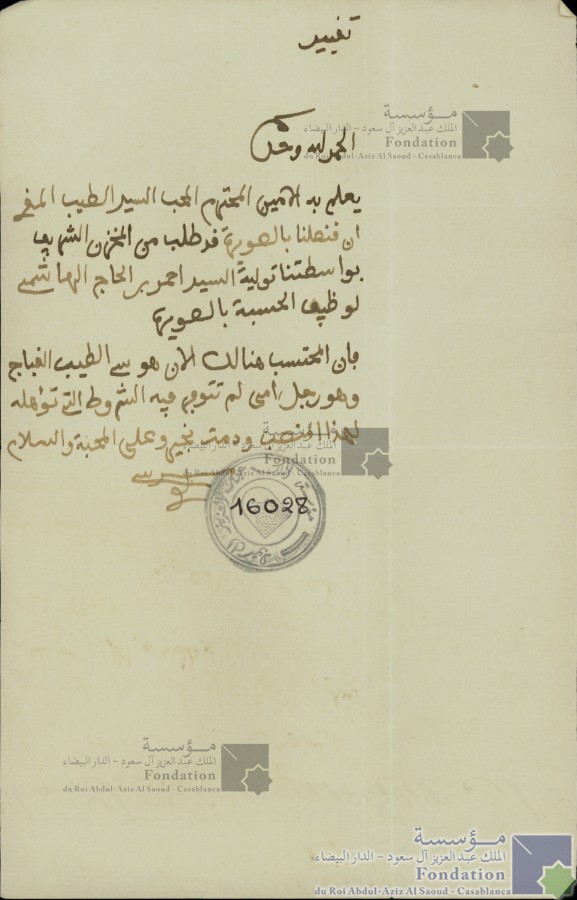 تقييد
الحمد لله وحده
يعلم به الامين المحترم المحب السيد الطيب المقري
ان قنصلنا بالصويرة قد طلب من المخزن الشريف
بواسطتنا تولية السيد احمد بن الحاج الهاشمي
لوظيف الحسبة بالصويرة
فان المحتسب هنالك الان هو سي الطيب القباج
وهو رجل امي لم تتوفر فيه الشروط التي تؤهله
لهذا المنصب ودمتم بخير وعلى المحبة والسلام
16028
مؤسسة
الملك عبدالعزيز آل سعود - الدار البيضاء
Fondation
du Roi Abdul-Aziz Al Saoud - Casablanca
مؤسسة
الملك عبدالعزيز آل سعود - الدار البيضاء
Fondation
du Roi Abdul-Aziz Al Saoud - Casablanca
مؤسسة
الملك عبدالعزيز آل سعود - الدار البيضاء
Fondation
du Roi Abdul-Aziz Al Saoud - Casablanca
مؤسسة
الملك عبدالعزيز آل سعود - الدار البيضاء
Fondation
du Roi Abdul-Aziz Al Saoud - Casablanca